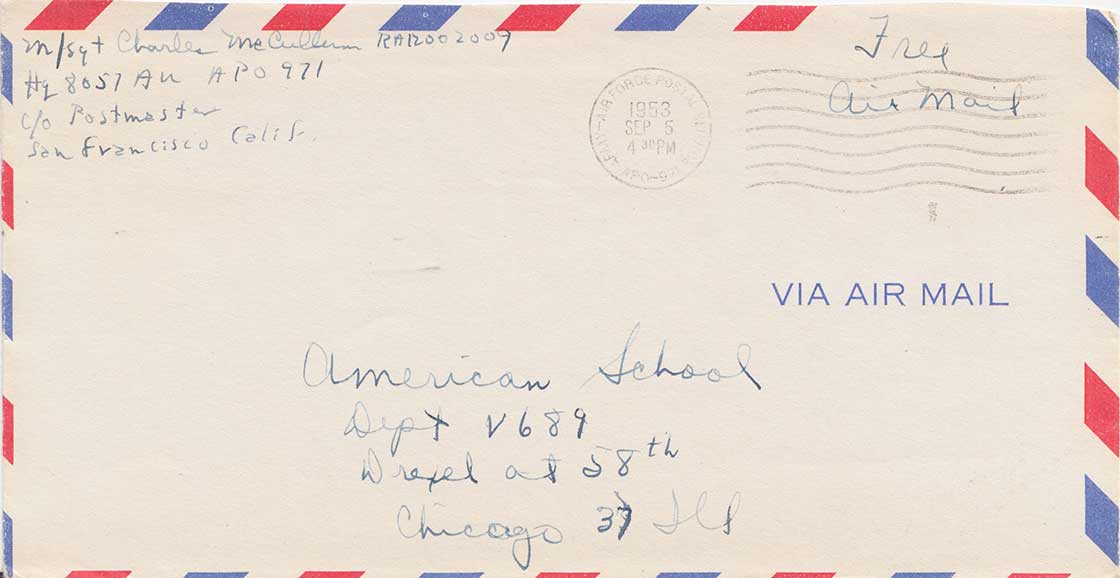 M/Sgt Charles McCullum RA12002009
Hq 8057 AU APO 971
c/o Postmaster
San Francisco Calif.
Free
Air Mail
ARMY-AIR FORCE POSTAL SERVICE
1953
SEP 5
4 30 PM
APO
VIA AIR MAIL
American School
Dept V689
Drexel at 58th
Chicago 37 Ill